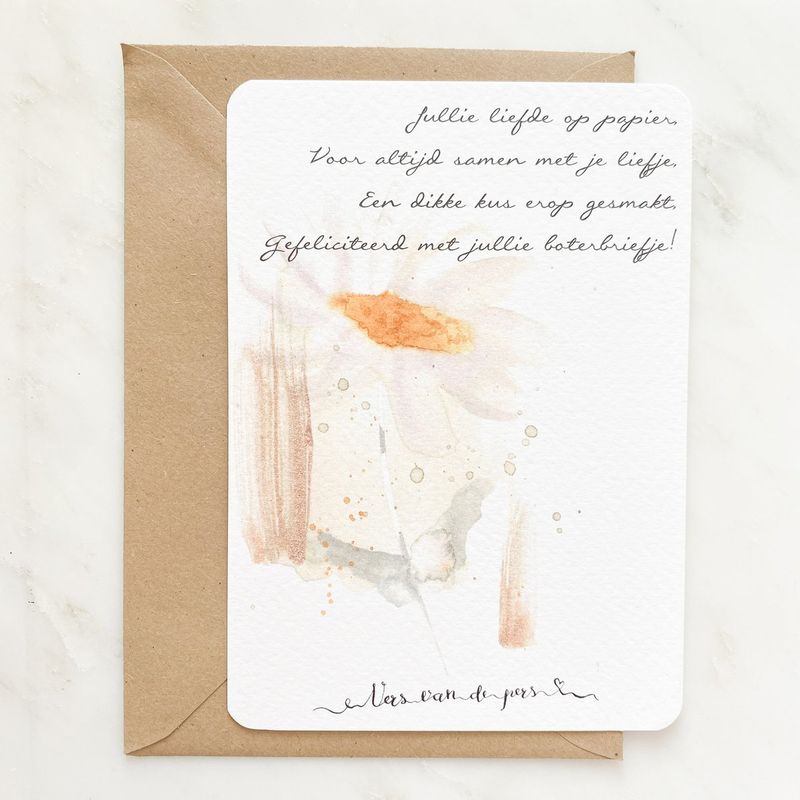 Jullie liefde op papier,
Voor altijd samen met je liefje,
Een dikke kus erop gesmakt,
Gefeliciteerd met jullie boterbriefje!
Vers van de pers